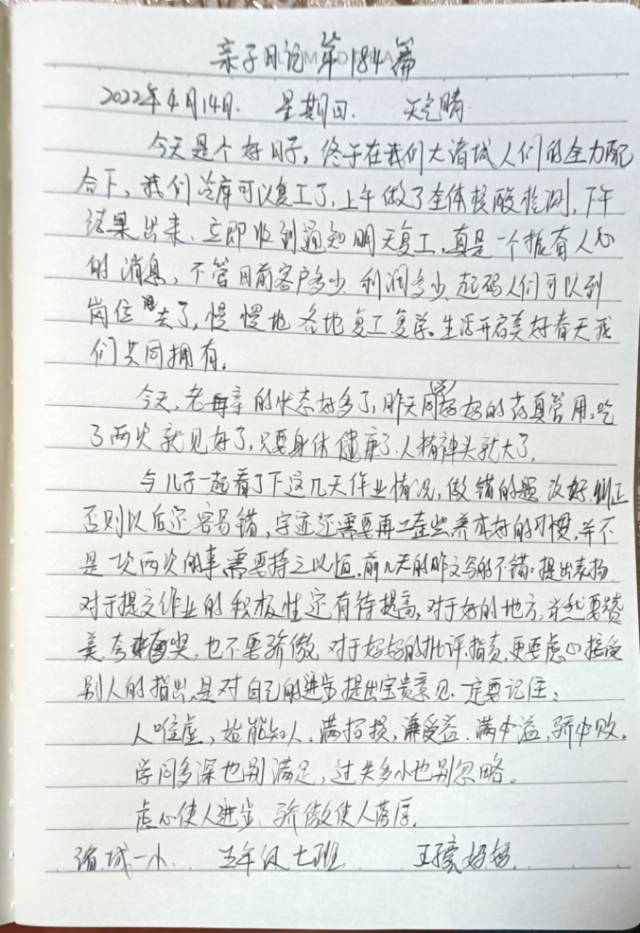 亲子日记第184篇
2022年4月14日. 星期四. 天气晴
今天是个好日子,终于在我们大诸城人们的全力配
合下,我们冷库可以复工了,上午做了全体核酸检测,下午
结果出来.立即收到通知明天复工,真是一个振奋人心
的消息,不管目前客户多少 利润多少 起码人们可以到
岗位 去了,慢慢地各地复工复学.生活开启美好春天我
们共同拥有.
今天,老母亲的状态好多了,昨天同 好的药真管用,吃
了两次就见好了,只要身体健康了.人精神头就大了,
与儿子一起看了下这几天作业情况,做错的题 改好纠正
否则以后还容易错,字迹还需要再工整些,养成好的习惯,并不
是一次两次的事,需要持之以恒.前几天的作文写的不错.提出表扬
对于提交作业的积极性还有待提高,对于好的地方,当然要赞
美夸 奖,也不要骄傲,对于好好的批评.指责,更要虚心接受
别人的指出,是对自己的进步提出宝贵意见.一定要记住:
人唯虚,始能知人,满招损,谦受益.满必溢,骄必败.
学问多深也别满足,过失多小也别忽略.
虚心使人进步.骄傲使人落后.
诸城一小. 五年级七班 王 妈妈.